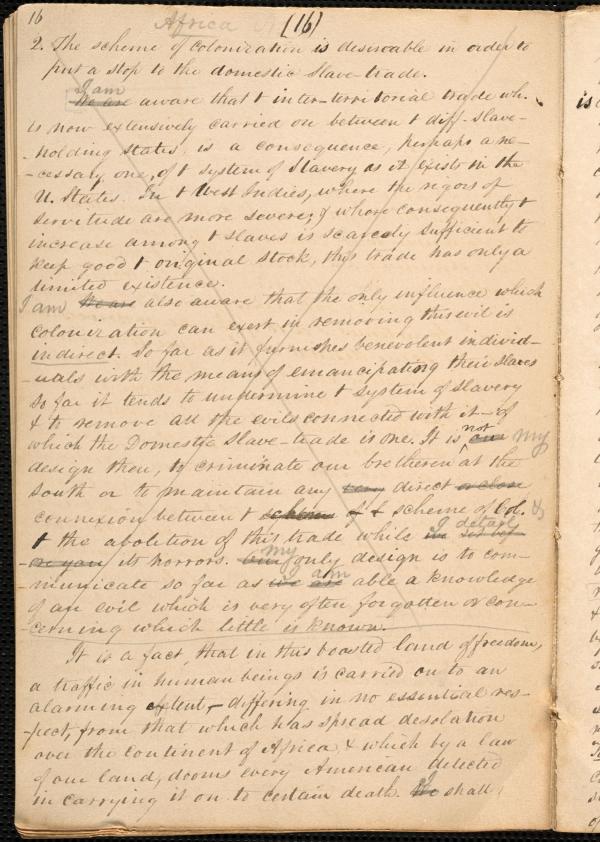 16 Africa (16)
2. The scheme of colonization is desireable in order to
put a stop to the domestic slave-trade.
I am
We are aware that t inter-territorial trade wh.
is now extensively carried on between t diff- slave-
-holding states, is a consequence, perhaps a ne-
-cessary one, of t system of Slavery as it exists in the
U. States. In t West Indies, where the rigors of
servitude are more severe, & where consequently t
increase among t slaves is scarcely sufficient to
keep good t original stock, this trade has only a
limited existence.
I am We are also aware that the only influence which
colonization can exert in removing this evil is
indirect. So far as it furnishes benevolent individ-
-uals with the means of emancipating their slaves
so far it tends to undermine t system of slavery
& to remove all the evils connected with it - of
which the Domestic slave-trade is one. It is not our my
design then, to criminate our bretheren at the
South or to maintain any very direct or close
connexion between t scheme of t scheme of Col. &
t the abolition of this trade while I detail
its horrors. Our my only design is to com-
-municate so far as we are am able a knowledge
of an evil which is very often forgotten or con-
-cerning which little is known.
It is a fact, that in this boasted land of freedom,
a traffic in human beings is carried on to an
alarming extent, - differing in no essential res-
-pect, from that which has spread desolation
over the continent of Africa & which by a law
of our land, dooms every American detected
in carrying it on to certain death. We shall
is